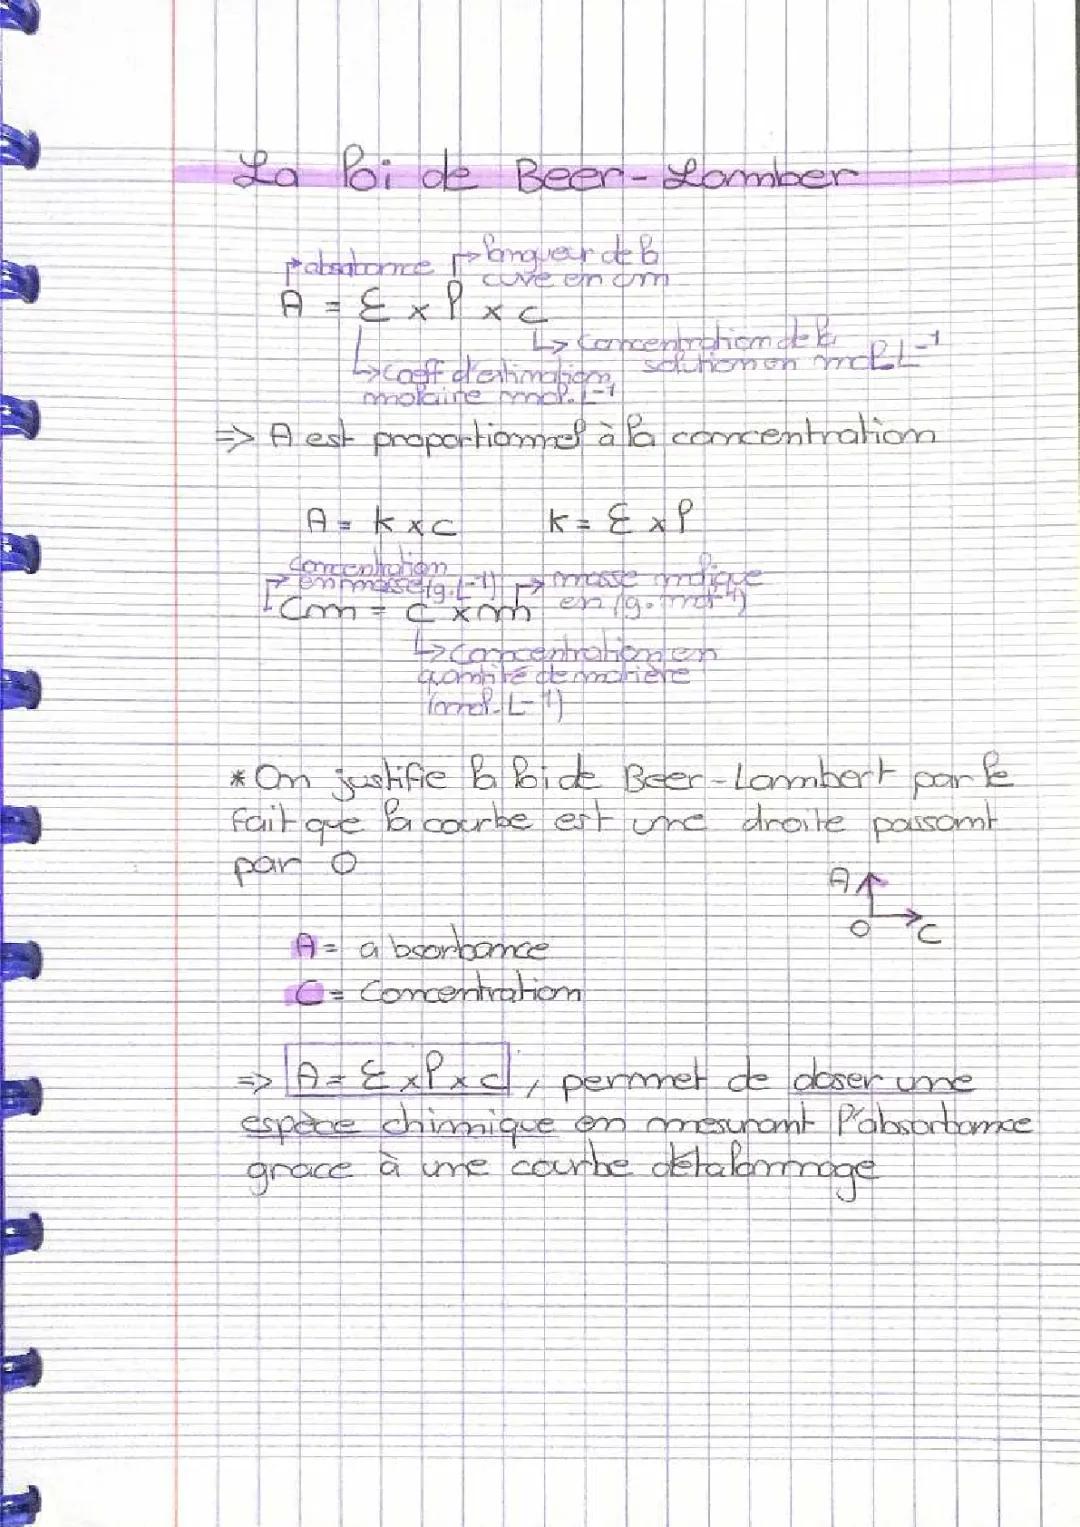 La loi de Beer-Lamber
absorbance
longueur de la
cuve en cm
A = Ɛ x l x c
concentration de la
solution en mol.L⁻¹
coeff d'extinction
molaire mol.L-1
=> A est proportionnel à la concentration
A = k x c   k = Ɛ x l
concentration
en masse (g.L-1)
masse
en (g.mol-1)
Cm = c x m
concentration en
quantité de matière
(mol.L-1)
* On justifie la loi de Beer-Lambert par le
fait que la courbe est une droite passant
par O
A
O C
A = absorbance
C = Concentration
=> A = Ɛ x l x c, permet de doser une
espèce chimique en mesurant l'absorbance
grace à une courbe d'étalonnage